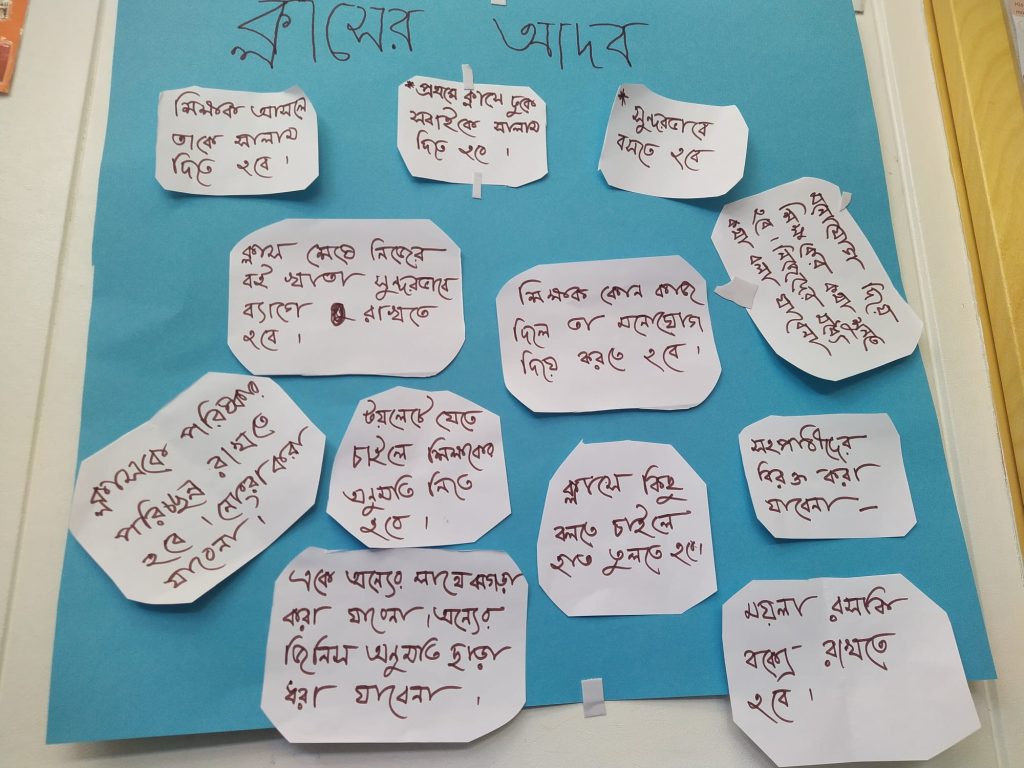 ক্লাসের আদব
শিক্ষক আসলে
তাকে সালাম
দিতে হবে ।
* প্রথমে ক্লাসে ঢুকে
সবাইকে সালাম
দিতে হবে ।
* সুন্দরভাবে
বসতে হবে
ক্লাস শেষে নিজের
বই খাতা সুন্দরভাবে
ব্যাগে রাখতে
হবে ।
শিক্ষক কোন কাজ
দিলে তা মনোযোগ
দিয়ে করতে হবে ।
ক্লাসকে পরিষ্কার
পরিচ্ছন্ন রাখতে
হবে । নোংরা করা
যাবেনা ।
টয়লেটে যেতে
চাইলে শিক্ষকের
অনুমতি নিতে
হবে ।
ক্লাসে কিছু
বলতে চাইলে
হাত তুলতে হবে।
সহপাঠীদের
বিরক্ত করা
যাবেনা –
একে অন্যের সাথে ঝগড়া
করা যাবেনা । অন্যের
জিনিস অনুমতি ছাড়া
ধরা যাবেনা ।
ময়লা
রাখতে
হবে ।